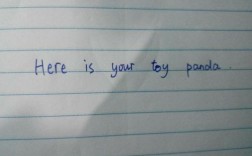 Here is your toy panda.